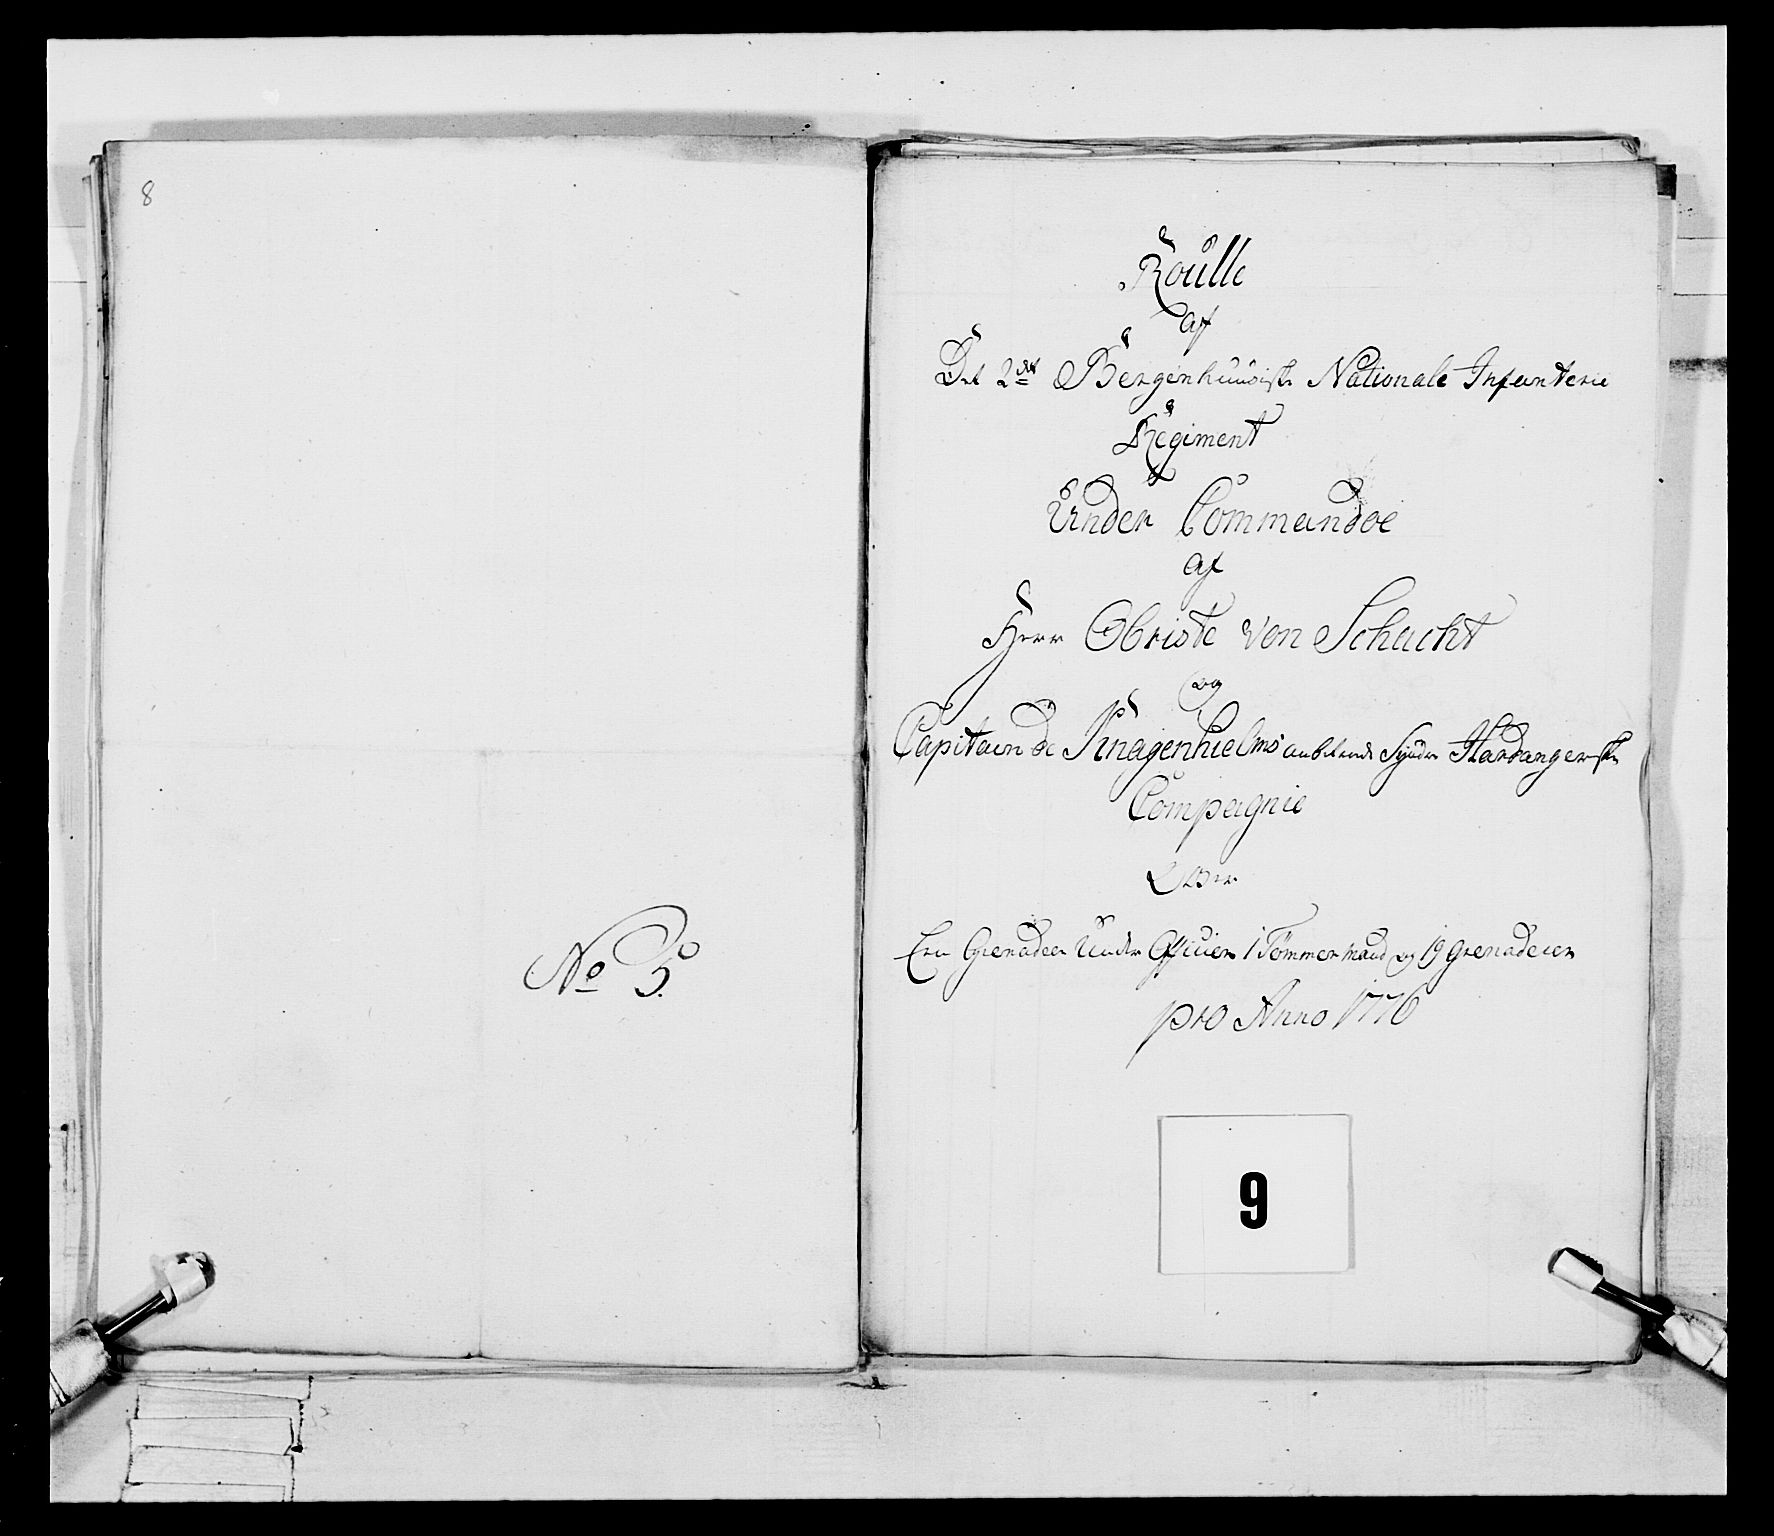 8
No 5.
Roulle
af
Det 2det Bergenhuusiske Nationale Infanterie
Regiment
Under Commandoe
af
Herr Obriste von Schacht
og
Capitain de Knagenhielms anbetroede Syndre Hardangerske
Compagnie
Over
Een Grenadeer Under Officier 1 Tömmermand og 19 Grenadeier
pro Anno 1776
9